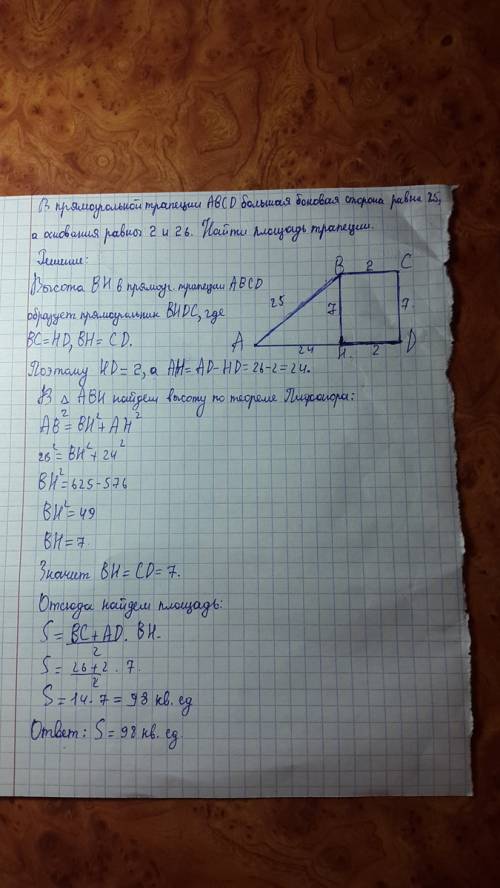 В прямоугольной трапеции ABCD большая боковая сторона равна 25,
а основания равны 2 и 26. Найти площадь трапеции.
Решение:
Высота BH в прямоуг. трапеции ABCD
образует прямоугольник BHDC, где
BC=HD, BH=CD.
Поэтому HD=2, а AH=AD-HD=26-2=24.
В △ ABH найдем высоту по теореме Пифагора:
AB²=BH²+AH²
26²=BH²+24²
BH²=625-576
BH²=49
BH=7
Значит BH=CD=7.
Отсюда найдем площадь:
S=BC+AD/2 · BH.
S=26+2/2 · 7.
S=14·7=98 кв. ед
Ответ: S=98 кв. ед.
B 2 C
25 7 7
A 24 H 2 D